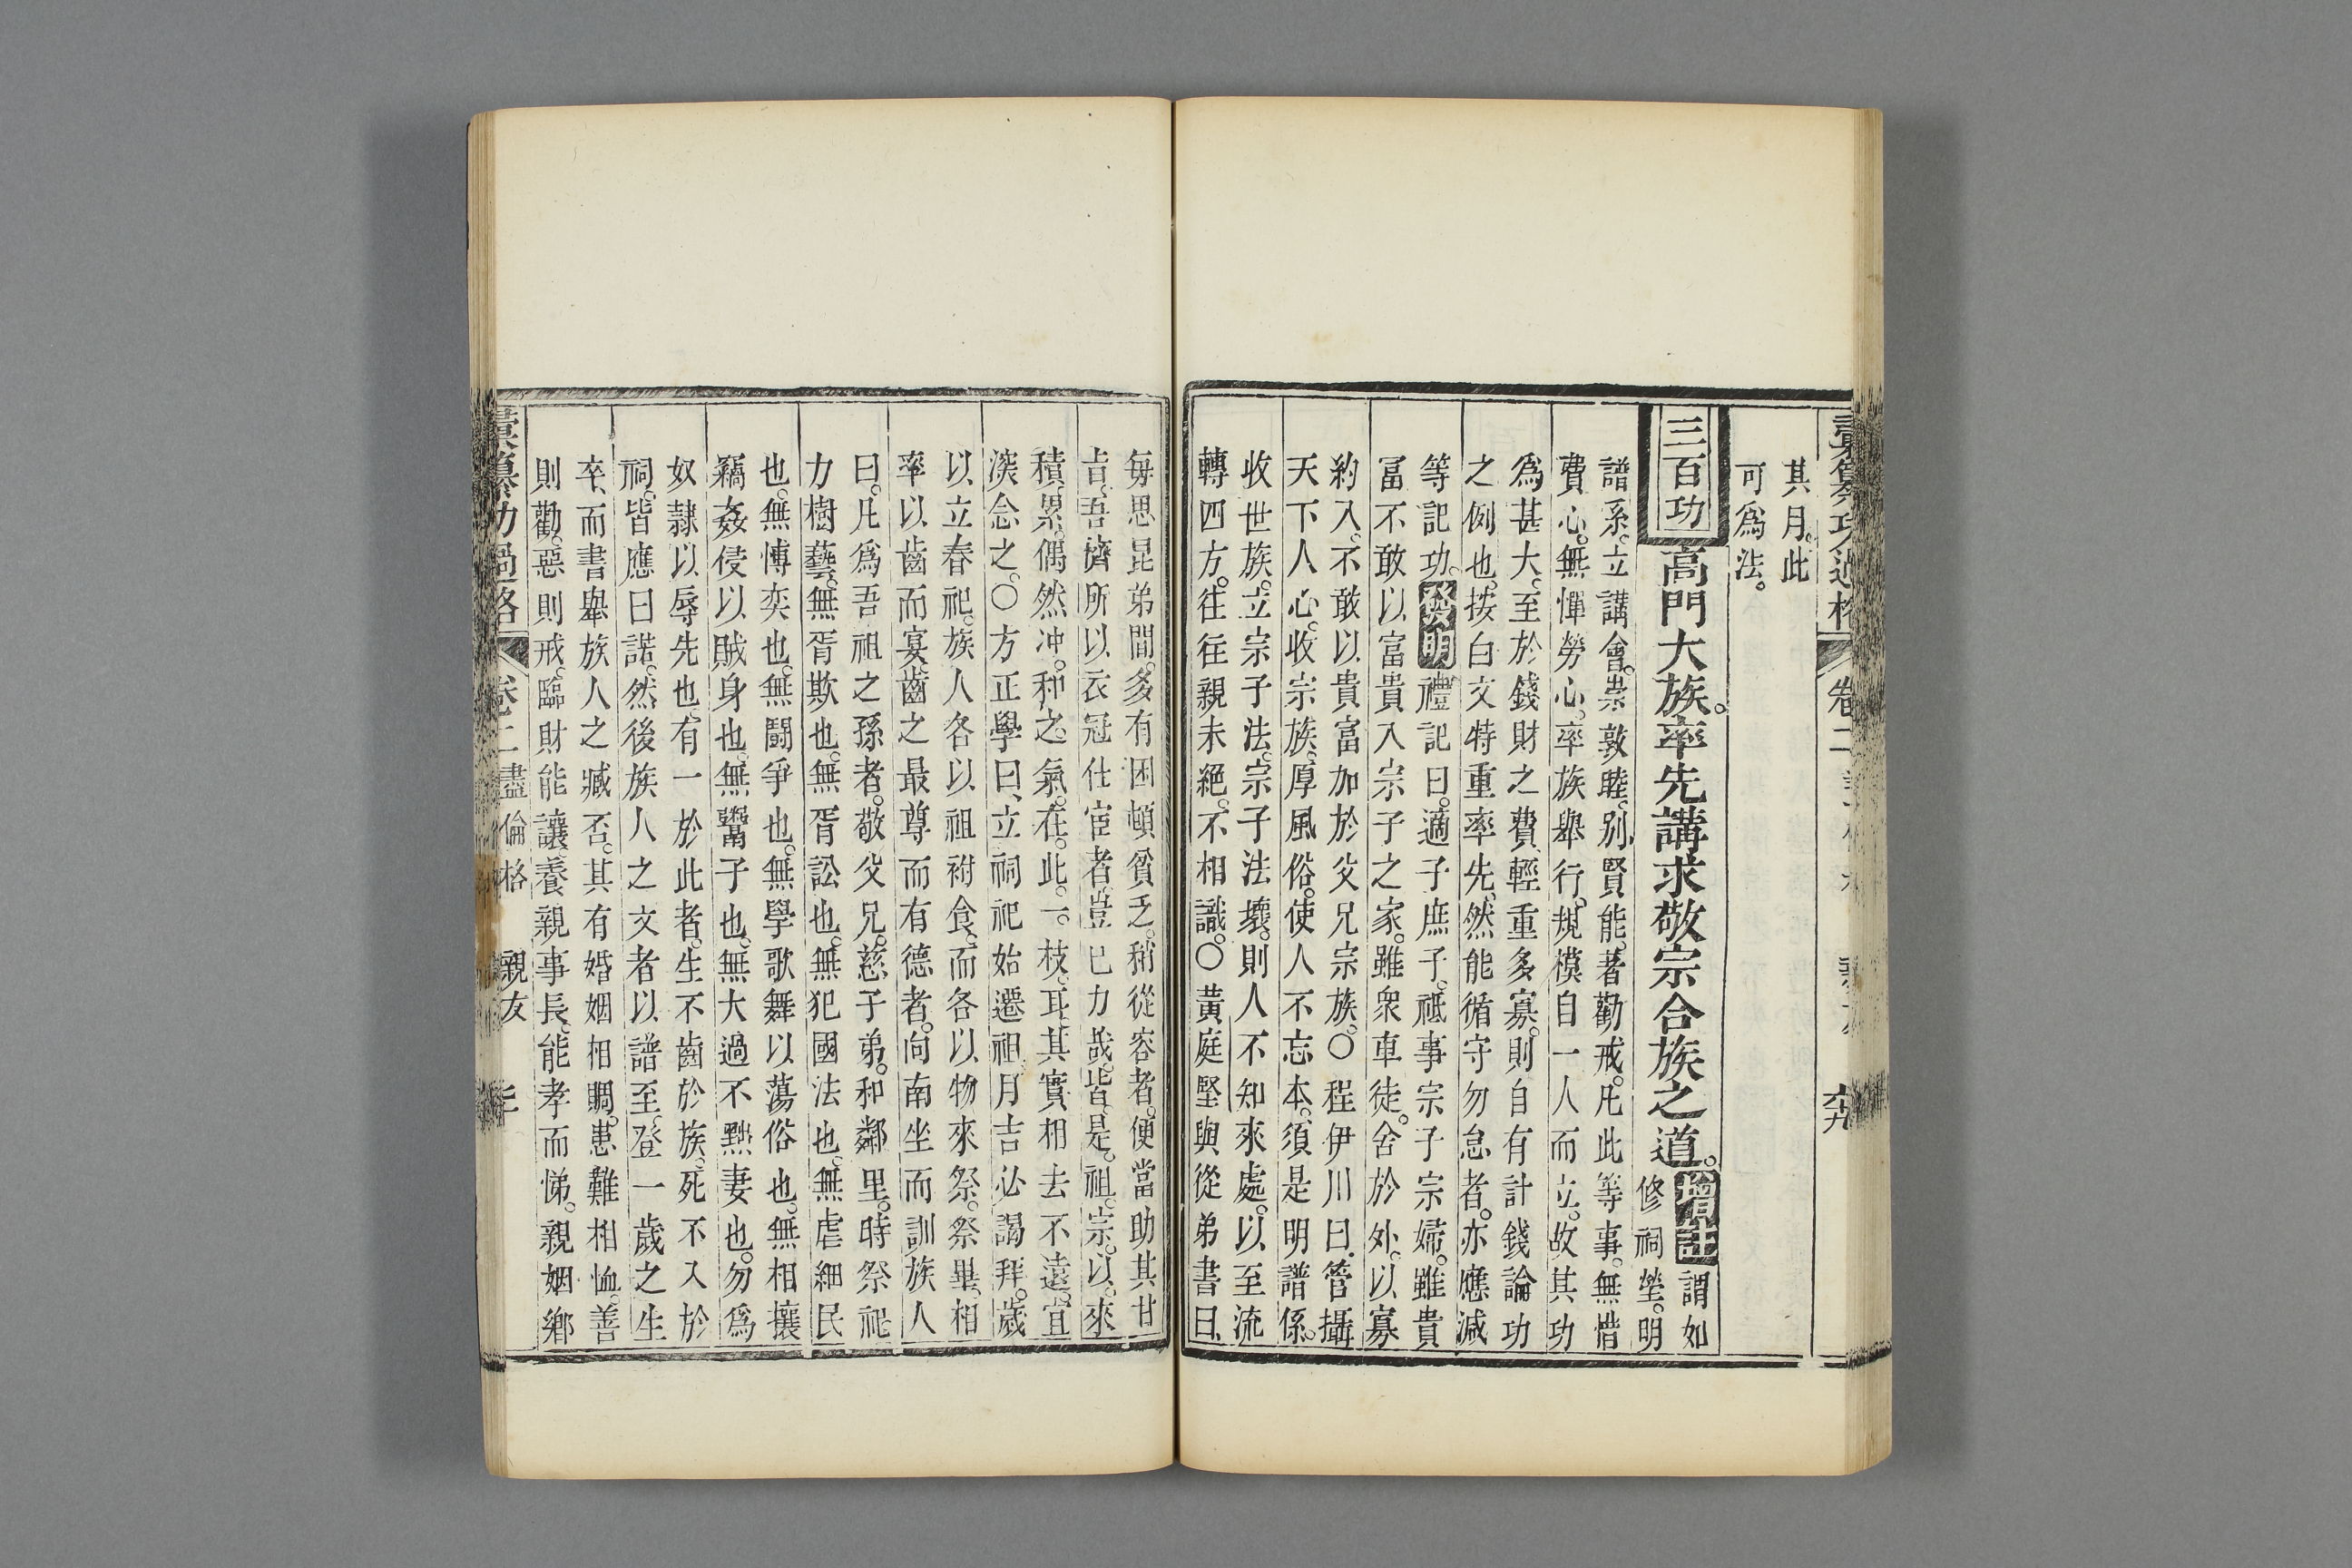 彙纂功過格 卷二
其月。此
可爲法。
三百功 高門大族。率先講求敬宗合族之道。增註 謂如
修祠塋。明
譜系。立講會。崇敦睦。别賢能。著勸戒。凡此等事。無惜
費心。無憚勞心。率族舉行。規模自一人而立。故其功
爲甚大。至於錢財之費輕重多寡。則自有計錢論功
之例也。按白文特重率先。然能循守勿怠者。亦應減
等記功。發明 禮記曰。適子庶子。祗事宗子宗婦。雖貴
富不敢以富貴入宗子之家。雖衆車徒。舍於外。以寡
約入。不敢以貴富加於父兄宗族。○程伊川曰。管攝
天下人心。收宗族。厚風俗。使人不忘本。須是明譜係。
收世族。立宗子法。宗子法壞。則人不知來處。以至流
轉四方。往往親未絕。不相識。○黃庭堅與從弟書曰、
每思昆弟間。多有困頓貧乏。稍從容者。便當助其甘
旨。吾儕所以衣冠仕宦者。豈已力哉。皆是。祖。宗。以。來
積。累。偶然冲。和。之。氣。在。此。一。枝。耳。其實相去不遠。宜
深念之。○方正學曰、立祠祀始遷祖。月吉必謁拜。歲
以立春祀。族人各以祖祔食。而各以物來祭。祭畢。相
率以齒而宴。齒之最尊而有德者。向南坐而訓族人
曰。凡爲吾祖之孫者。敬父兄。慈子弟。和鄰里。時祭祀
力樹藝。無胥欺也。無胥訟也。無犯國法也。無虐細民
也。無博奕也。無鬬爭也。無學歌舞以蕩俗也。無相攘
竊姦侵以賊身也。無鬻子也。無大過不黜妻也。勿爲
奴隷以辱先也。有一於此者。生不齒於族。死不入於
祠。皆應曰諾。然後族人之文者以譜至。登一歲之生
卒、而書舉族人之臧否。其有婚姻相賙。患難相恤。善
則勸。惡則戒。臨財能讓。養親事長。能孝而悌。親姻鄉
彙纂功過格 卷二 盡倫格 親友